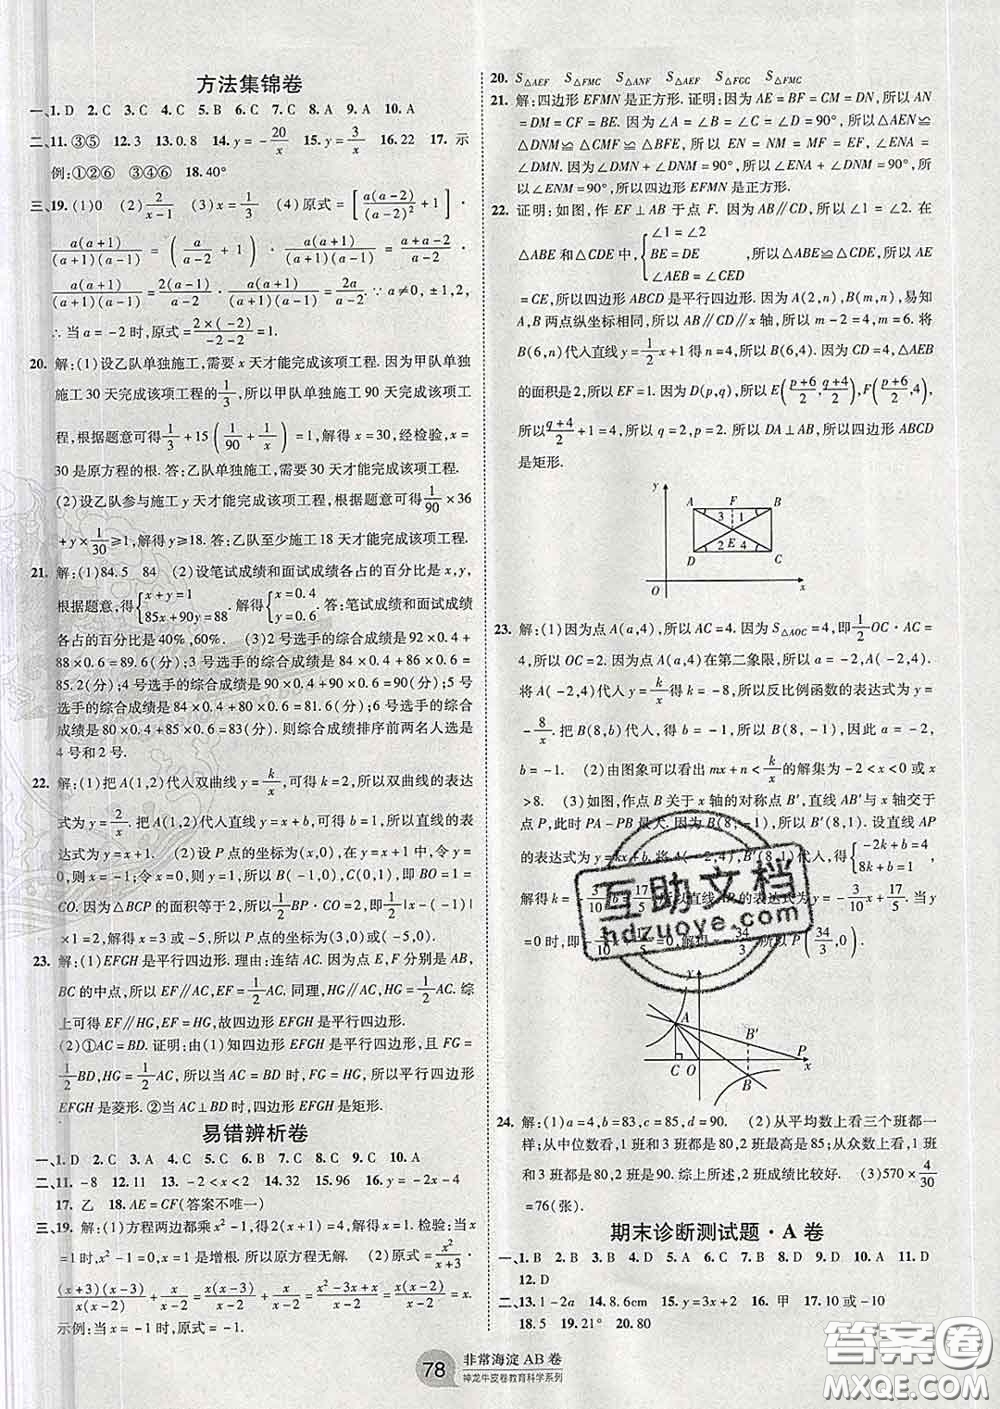 方法集锦卷
一、1. D 2. C 3. C 4. C 5. B 6. C 7. C 8. A 9. A 10. A
二、11. ③⑤ 12. 3 13. 0. 8 14. y = -20/x 15. y = 3/x 16. 22 17. 示
例:①②⑥ ③④⑥ 18. 40°
三、19. (1)0 (2) 2/(x-1) (3)x = 1/3 (4)原式 = [a(a-2)/(a-2)² + 1] ·
a(a+1)/((a+1)(a-1)) = (a/(a-2) + 1) · a(a+1)/((a+1)(a-1)) = (a+a-2)/(a-2) ·
a(a+1)/((a+1)(a-1)) = 2(a-1)/(a-2) · a/(a-1) = 2a/(a-2). ∵ a≠0, ±1,2,
∴ 当 a = -2 时,原式 = 2×(-2)/(-2-2) = 1.
20. 解:(1)设乙队单独施工,需要 x 天才能完成该项工程. 因为甲队单独
施工 30 天完成该项工程的1/3,所以甲队单独施工 90 天完成该项工
程,根据题意可得1/3 + 15(1/90 + 1/x) = 1,解得 x = 30,经检验, x =
30 是原方程的根. 答:乙队单独施工,需要 30 天才能完成该项工程.
(2)设乙队参与施工 y 天才能完成该项工程,根据题意可得1/90 × 36
+ y × 1/30 ≥1,解得 y≥18. 答:乙队至少施工 18 天才能完成该项工程.
21. 解:(1)84. 5 84 (2)设笔试成绩和面试成绩各占的百分比是 x,y,
根据题意,得{x + y = 1 85x + 90y = 88. 解得{x = 0. 4 y = 0. 6. 答:笔试成绩和面试成绩
各占的百分比是 40%,60%. (3)2 号选手的综合成绩是 92 × 0. 4 +
88 × 0. 6 = 89. 6(分);3 号选手的综合成绩是 84 × 0. 4 + 86 × 0. 6 =
85. 2(分);4 号选手的综合成绩是 90 × 0. 4 + 90 × 0. 6 = 90(分);5 号
选手的综合成绩是 84 × 0. 4 + 80 × 0. 6 = 81. 6(分);6 号选手的综合
成绩是 80 × 0. 4 + 85 × 0. 6 = 83(分). 则综合成绩排序前两名人选是
4 号和 2 号.
22. 解:(1)把 A(1,2)代入双曲线 y = k/x,可得 k = 2,所以双曲线的表达
式为 y = 2/x. 把 A(1,2)代入直线 y = x + b,可得 b = 1,所以直线的表
达式为 y = x + 1. (2)设 P 点的坐标为(x,0),在 y = x + 1 中,令 y =
0,则 x = -1;令 x = 0,则 y = 1,所以 B( -1,0),C(0,1),即 BO = 1 =
CO. 因为△BCP 的面积等于 2,所以1/2BP · CO = 2,即1/2|x - ( -1)|
×1 = 2,解得 x = 3 或 -5,所以 P 点的坐标为(3,0)或( -5,0).
23. 解:(1)EFGH 是平行四边形. 理由:连结 AC. 因为点 E,F 分别是 AB,
BC 的中点,所以 EF∥AC,EF = 1/2AC. 同理,HG∥AC,HG = 1/2AC. 综
上可得 EF∥HG,EF = HG,故四边形 EFGH 是平行四边形.
(2)①AC = BD. 证明:由(1)知四边形 EFGH 是平行四边形,且 FG =
1/2BD,HG = 1/2AC,所以当 AC = BD 时,FG = HG,所以平行四边形
EFGH 是菱形. ②当 AC⊥BD 时,四边形 EFGH 是矩形.
易错辨析卷
一、1. D 2. C 3. A 4. C 5. B 6. A 7. B 8. C 9. C 10. A
二、11. -8 12. 11 13. -2 < x < 2 14. 32 15. 96 16. y = -2x - 4
17. 乙 18. AE = CF(答案不唯一)
三、19. 解:(1)方程两边都乘 x² - 1,得 2(x + 1) = 4,解得 x = 1. 检验:当 x
= 1 时,x² - 1 = 0,x = 1 是增根. 所以原方程无解. (2)原式 = x/(x+3) ·
(x+3)(x-3)/(x(x-2)) + x/(x-2) = x(x-3)/(x(x-2)) + x/(x-2) = (x²-3x+x)/(x-2) = x(x-2)/(x-2) = x.
示例:当 x = -1 时,原式 = -1.
20. S△AEF S△FMC S△ANF S△AEF S△FGC S△FMC
21. 解:四边形 EFMN 是正方形. 证明:因为 AE = BF = CM = DN,所以 AN
= DM = CF = BE. 因为∠A = ∠B = ∠C = ∠D = 90°,所以△AEN≌
△DNM≌△CMF≌△BFE,所以 EN = NM = MF = EF,∠ENA =
∠DMN. 因为∠DMN + ∠DNM = 90°,所以∠ENA + ∠DNM = 90°,
所以∠ENM = 90°,所以四边形 EFMN 是正方形.
22. 证明:如图,作 EF⊥AB 于点 F. 因为 AB∥CD,所以∠1 = ∠2. 在
△ABE 和△CDE 中,{∠1 = ∠2 BE = DE ∠AEB = ∠CED ,所以△ABE≌△CDE,所以 AE
= CE,所以四边形 ABCD 是平行四边形. 因为 A(2,n),B(m,n),易知
A,B 两点纵坐标相同,所以 AB∥CD∥x 轴,所以 m - 2 = 4,m = 6. 将
B(6,n)代入直线 y = 1/2x + 1 得 n = 4,所以 B(6,4). 因为 CD = 4,△AEB
的面积是 2,所以 EF = 1. 因为 D(p,q),所以 E((p+6)/2,(q+4)/2),F((p+6)/2,4),
所以(q+4)/2 + 1 = 4,所以 q = 2,p = 2. 所以 DA⊥AB,所以四边形 ABCD
是矩形.
y A F B 3 1 2 E 4 D C O x
23. 解:(1)因为点 A(a,4),所以 AC = 4. 因为 S△AOC = 4,即1/2OC · AC =
4,所以 OC = 2. 因为点 A(a,4)在第二象限,所以 a = -2,A( -2,4).
将 A( -2,4)代入 y = k/x得 k = -8,所以反比例函数的表达式为 y =
-8/x. 把 B(8,b)代入得 b = -1,所以 B(8, -1),因此 a = -2,
b = -1. (2)由图象可以看出 mx + n < k/x的解集为 -2 < x < 0 或 x
>8. (3)如图,作点 B 关于 x 轴的对称点 B′,直线 AB′与 x 轴交于
点 P,此时 PA - PB 最大. 因为 B(8, -1),所以 B′(8,1). 设直线 AP
的表达式为 y = kx + b,将 A( -2,4),B′(8,1)代入,得{ -2k + b = 4 8k + b = 1
解得 k = -3/10,b = 17/5,所以直线 AP 的表达式为 y = -3/10x + 17/5. 当 y
= 0 时,即 -3/10x + 17/5 = 0,解得 x = 34/3,所以 P(34/3,0).
y A B′ P C O x B
24. 解:(1)a = 4,b = 83,c = 85,d = 90. (2)从平均数上看三个班都一
样;从中位数看,1 班和 3 班一样是 80,2 班最高是 85;从众数上看,1 班
和 3 班都是 80,2 班是 90;综上所述,2 班成绩比较好. (3)570 × 4/30
= 76(张).
期末诊断测试题 · A 卷
一、1. B 2. D 3. B 4. D 5. C 6. D 7. B 8. D 9. D 10. A 11. D
12. D
二、13. 1 - 2a 14. 8. 6cm 15. y = 3x + 2 16. 甲 17. 10 或 -10
18. 5 19. 21° 20. 80
78
非常海淀 AB 卷
神龙牛皮卷教育科学系列
互助文档
hdzuoye.com
答案圈
MXQE.COM